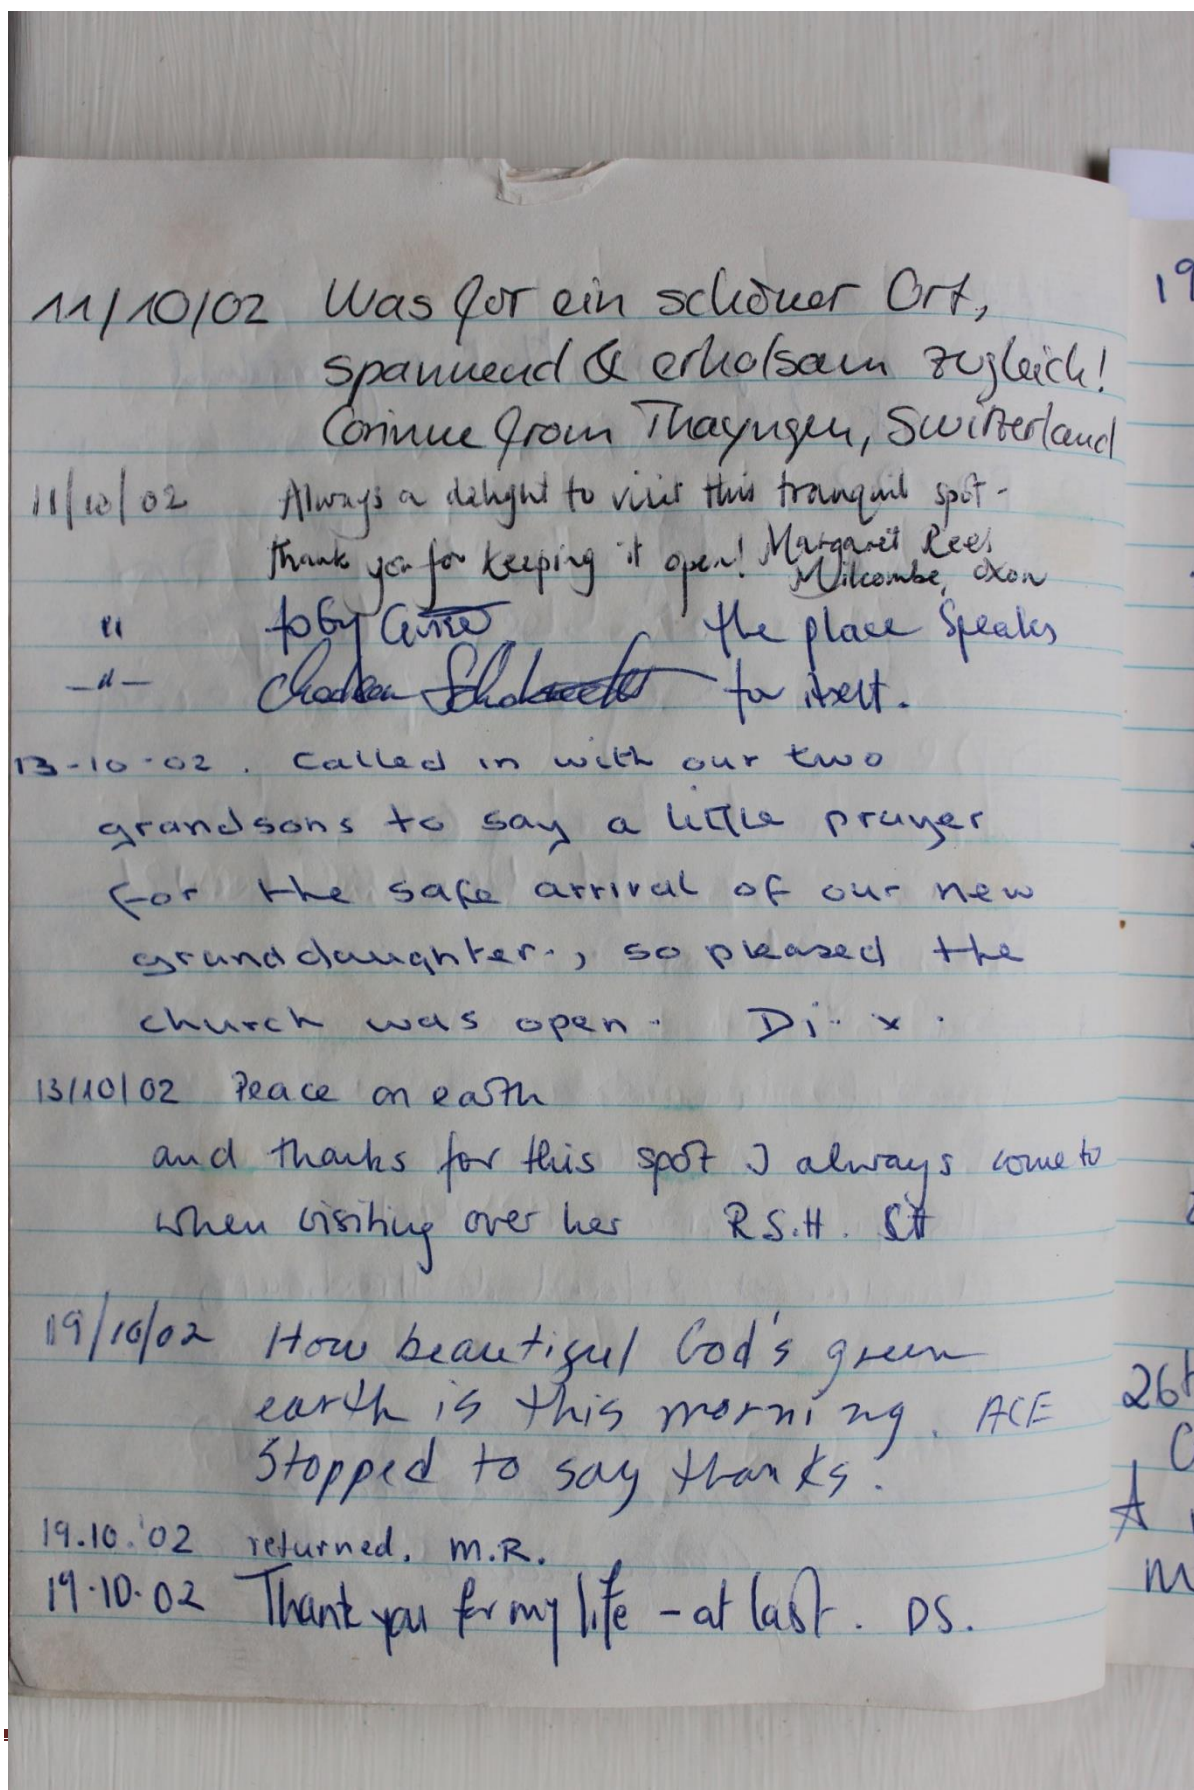 11/10/02 Was für ein schöner Ort,
spannend & erholsam zugleich!
Corinne from Thayngen, Switzerland
11/10/02 Always a delight to visit this tranquil spot -
thank you for keeping it open! Margaret Rees
Milcombe, Oxon
" toby the place Speaks
-"- for itself.
13-10-02. Called in with our two
grandsons to say a little prayer
for the safe arrival of our new
granddaughter., so pleased the
church was open. Di. x.
13/10/02 Peace on earth
and thanks for this spot I always come to
when visiting over her R.S.H.
19/10/02 How beautiful God's green
earth is this morning. ACE
Stopped to say thanks.
19.10.'02 returned. M.R.
19.10.02 Thank you for my life - at last. DS.
19
26t
C
A
m